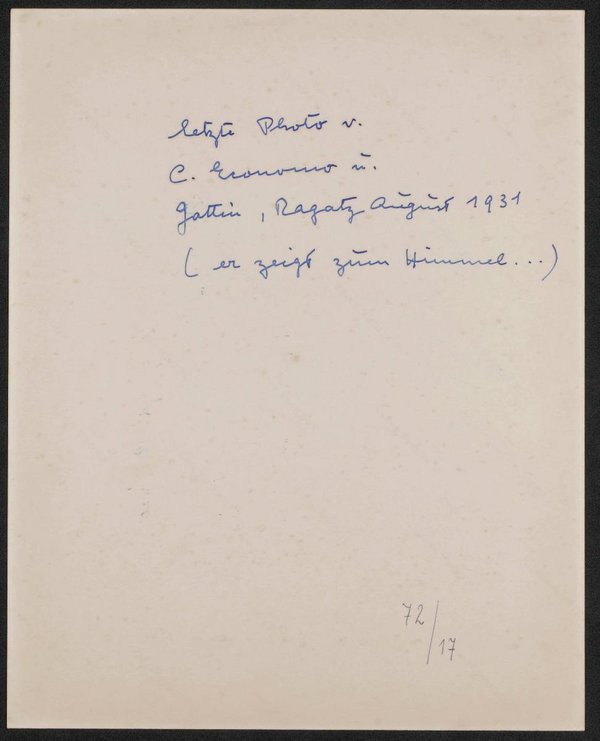 letzte Photo v.
C. Economo u.
Gattin, Ragatz August 1931
(er zeigt zum Himmel...)
72/17